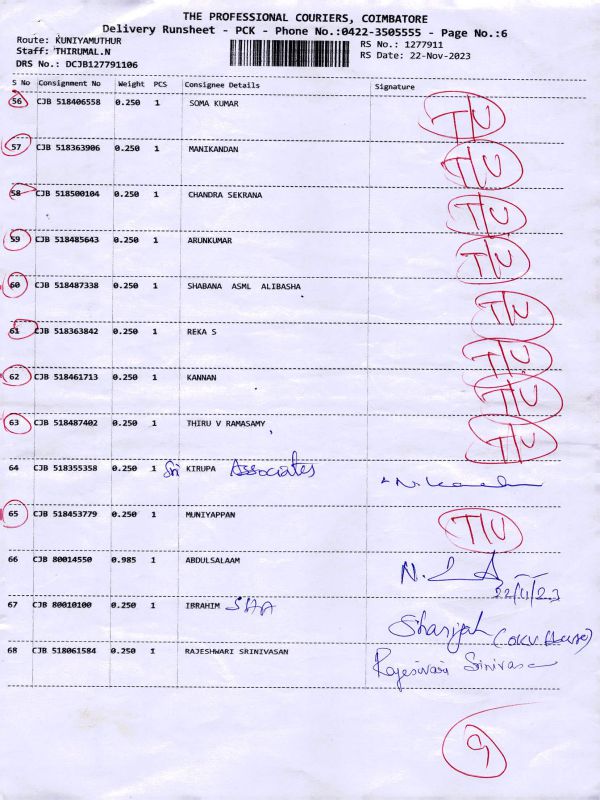 THE PROFESSIONAL COURIERS, COIMBATORE
Delivery Runsheet - PCK - Phone No.:0422-3505555 - Page No.:6
Route: KUNIYAMUTHUR RS No.: 1277911
Staff: THIRUMAL.N RS Date: 22-Nov-2023
DRS No.: DCJB127791106
S No Consignment No Weight PCS Consignee Details Signature
56 CJB 518406558 0.250 1 SOMA KUMAR T/U
57 CJB 518363906 0.250 1 MANIKANDAN T/U
58 CJB 518500104 0.250 1 CHANDRA SEKRANA T/U
59 CJB 518485643 0.250 1 ARUNKUMAR T/U
60 CJB 518487338 0.250 1 SHABANA ASML ALIBASHA T/U
61 CJB 518363842 0.250 1 REKA S T/U
62 CJB 518461713 0.250 1 KANNAN T/U
63 CJB 518487402 0.250 1 THIRU V RAMASAMY T/U
64 CJB 518355358 0.250 1 Sri KIRUPA Associates
65 CJB 518453779 0.250 1 MUNIYAPPAN T/U
66 CJB 80014550 0.985 1 ABDULSALAAM
22/11/23
67 CJB 80010100 0.250 1 IBRAHIM
68 CJB 518061584 0.250 1 RAJESHWARI SRINIVASAN Rajeswari Srinivasa
9